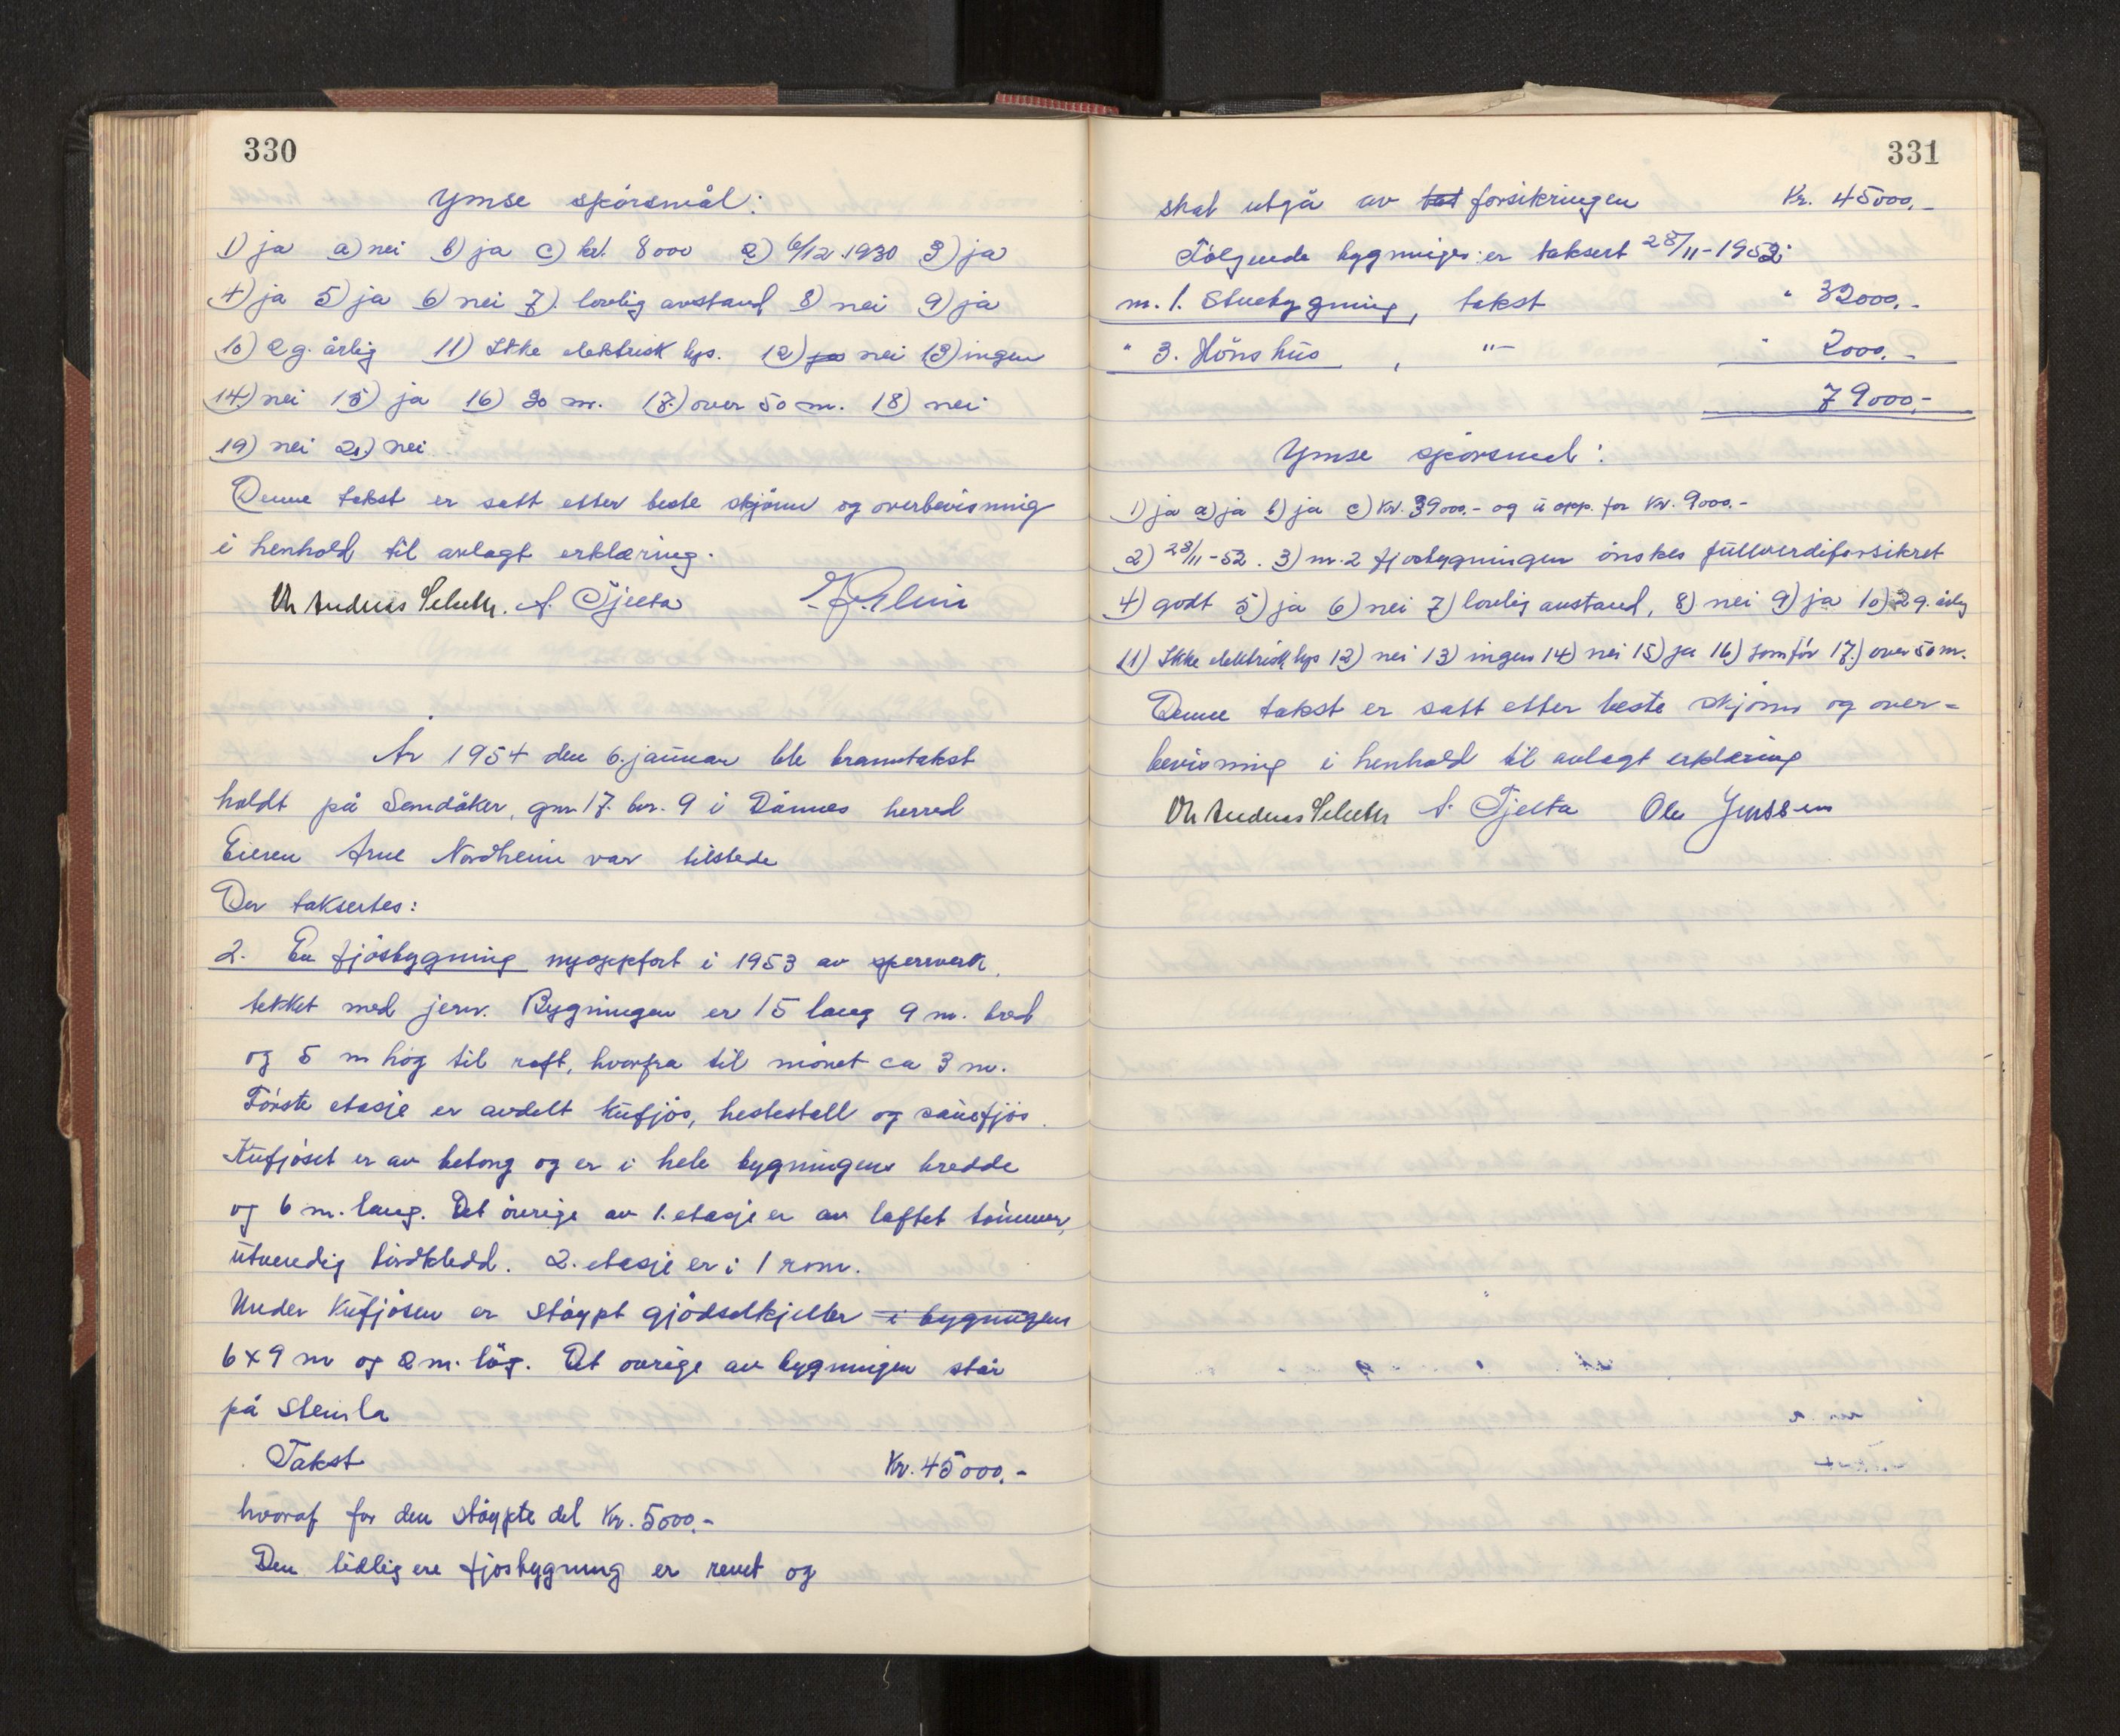 330
Ymse spörsmål:
1) ja a) nei b) ja c) kr. 8000 2) 6/12.1930 3) ja
4) ja 5) ja 6) nei 7). lovlig avstand 8) nei 9) ja
10) 2 g. årlig 11) Ikke elektrisk lys. 12) ja nei 13) ingen
14) nei 15) ja 16) 30 m. 17.) over 50 m. 18) nei
19) nei 21.) nei
Denne takst er satt etter beste skjönn og overbevisning
i henhold til avlagt erklæring.
Andreas A. Tjelta
År 1954 den 6. januar ble branntakst
holdt på Sandåker, gnr. 17. bnr. 9 i Dönnes herred
Eieren Arne Nordheim var tilstede
Der taksertes:
2. En fjösbygning nyoppfört i 1953 av sperrverk.
tekket med jern. Bygningen er 15 lang 9 m. bred
og 5 m hög til raft, hvorfra til mönet ca 3 m.
Förste etasje er avdelt kufjös, hestestall og sauefjös.
Kufjöset er av betong og er i hele bygningens bredde
og 6 m. lang. Det överige av 1. etasje er av laftet tömmer,
utvendig bordkledd. 2. etasje er i 1 rom.
Under kufjösen er stöypt gjödselkjeller i bygningens
6 x 9 m og 2 m. Det overige av bygningen står
på steinla
Takst Kr. 45000.-
hvoraf for den stöypte del Kr. 5000.-
Den tidligere fjosbygning er revet og
331
skal utgå av tat forsikringen Kr. 45000.-
Fölgende bygninger er taksert 28/11-1952:
nr. 1. Stuebygning, takst " 32000.-
" 3. Hönshus, "- " 2000.-
79000.-
Ymse spörsmål:
1) ja a) ja b) ja c) Kr. 39000.- og opp. for Kr. 9000.-
2) 28/11-52. 3) nr. 2 fjosbygningen önskes fullverdiforsikret
4) godt 5) ja 6) nei 7) lovlig avstand, 8) nei 9) ja 10) 2 g. årlig
11) Ikke elektrisk lys 12) nei 13) ingen 14) nei 15) ja 16) som för 17.) over 50 m.
Denne takst er satt etter beste skjönn og over-
bevisning i henhold til avlagt erklæring
Andreas A. Tjelta Ole Jenssen